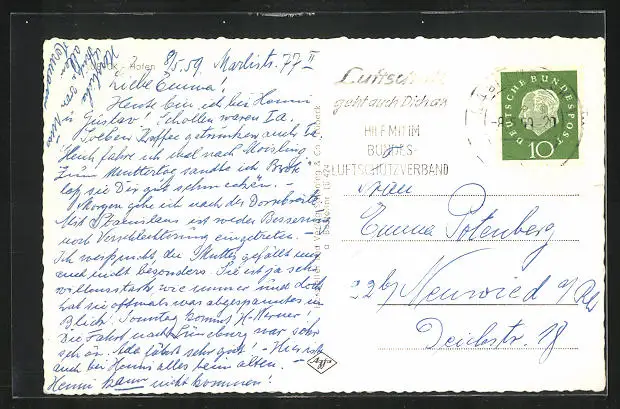 8/5.59. Marlistr. 77 II
Liebe Emma!
Heute bin ich bei Henni
Gustav! Schollen waren Ia.
Soeben Kaffee getrunken auch Ia.
Heute fahre ich mal nach Moisling
Zum Muttertag sandte ich Brot
lass Dir gut schmecken. -
Morgen gehe ich nach der Dornbreite
Mit Stanislaus ist weder Besserung
noch Verschlechterung eingetreten. -
Ich
auch nicht besonders. Sie ist ja sehr
willensstark wie immer und doch
hat sie oftmals was abgespanntes im
Blick! Sonntag kommt H-Werner!
Die Fahrt nach Lüneburg war sehr
schön. Ada fährt sehr gut! - Hier ist
auch bei Henni alles beim alten. -
Henni kann nicht kommen!
Luftschutz
geht auch Dich an
HILF MIT IM
BUNDES-
LUFTSCHUTZVERBAND
DEUTSCHE BUNDESPOST
10
Frau
Emma Potenberg
22b Neuwied a/Rh
Deichstr. 18
Agfa